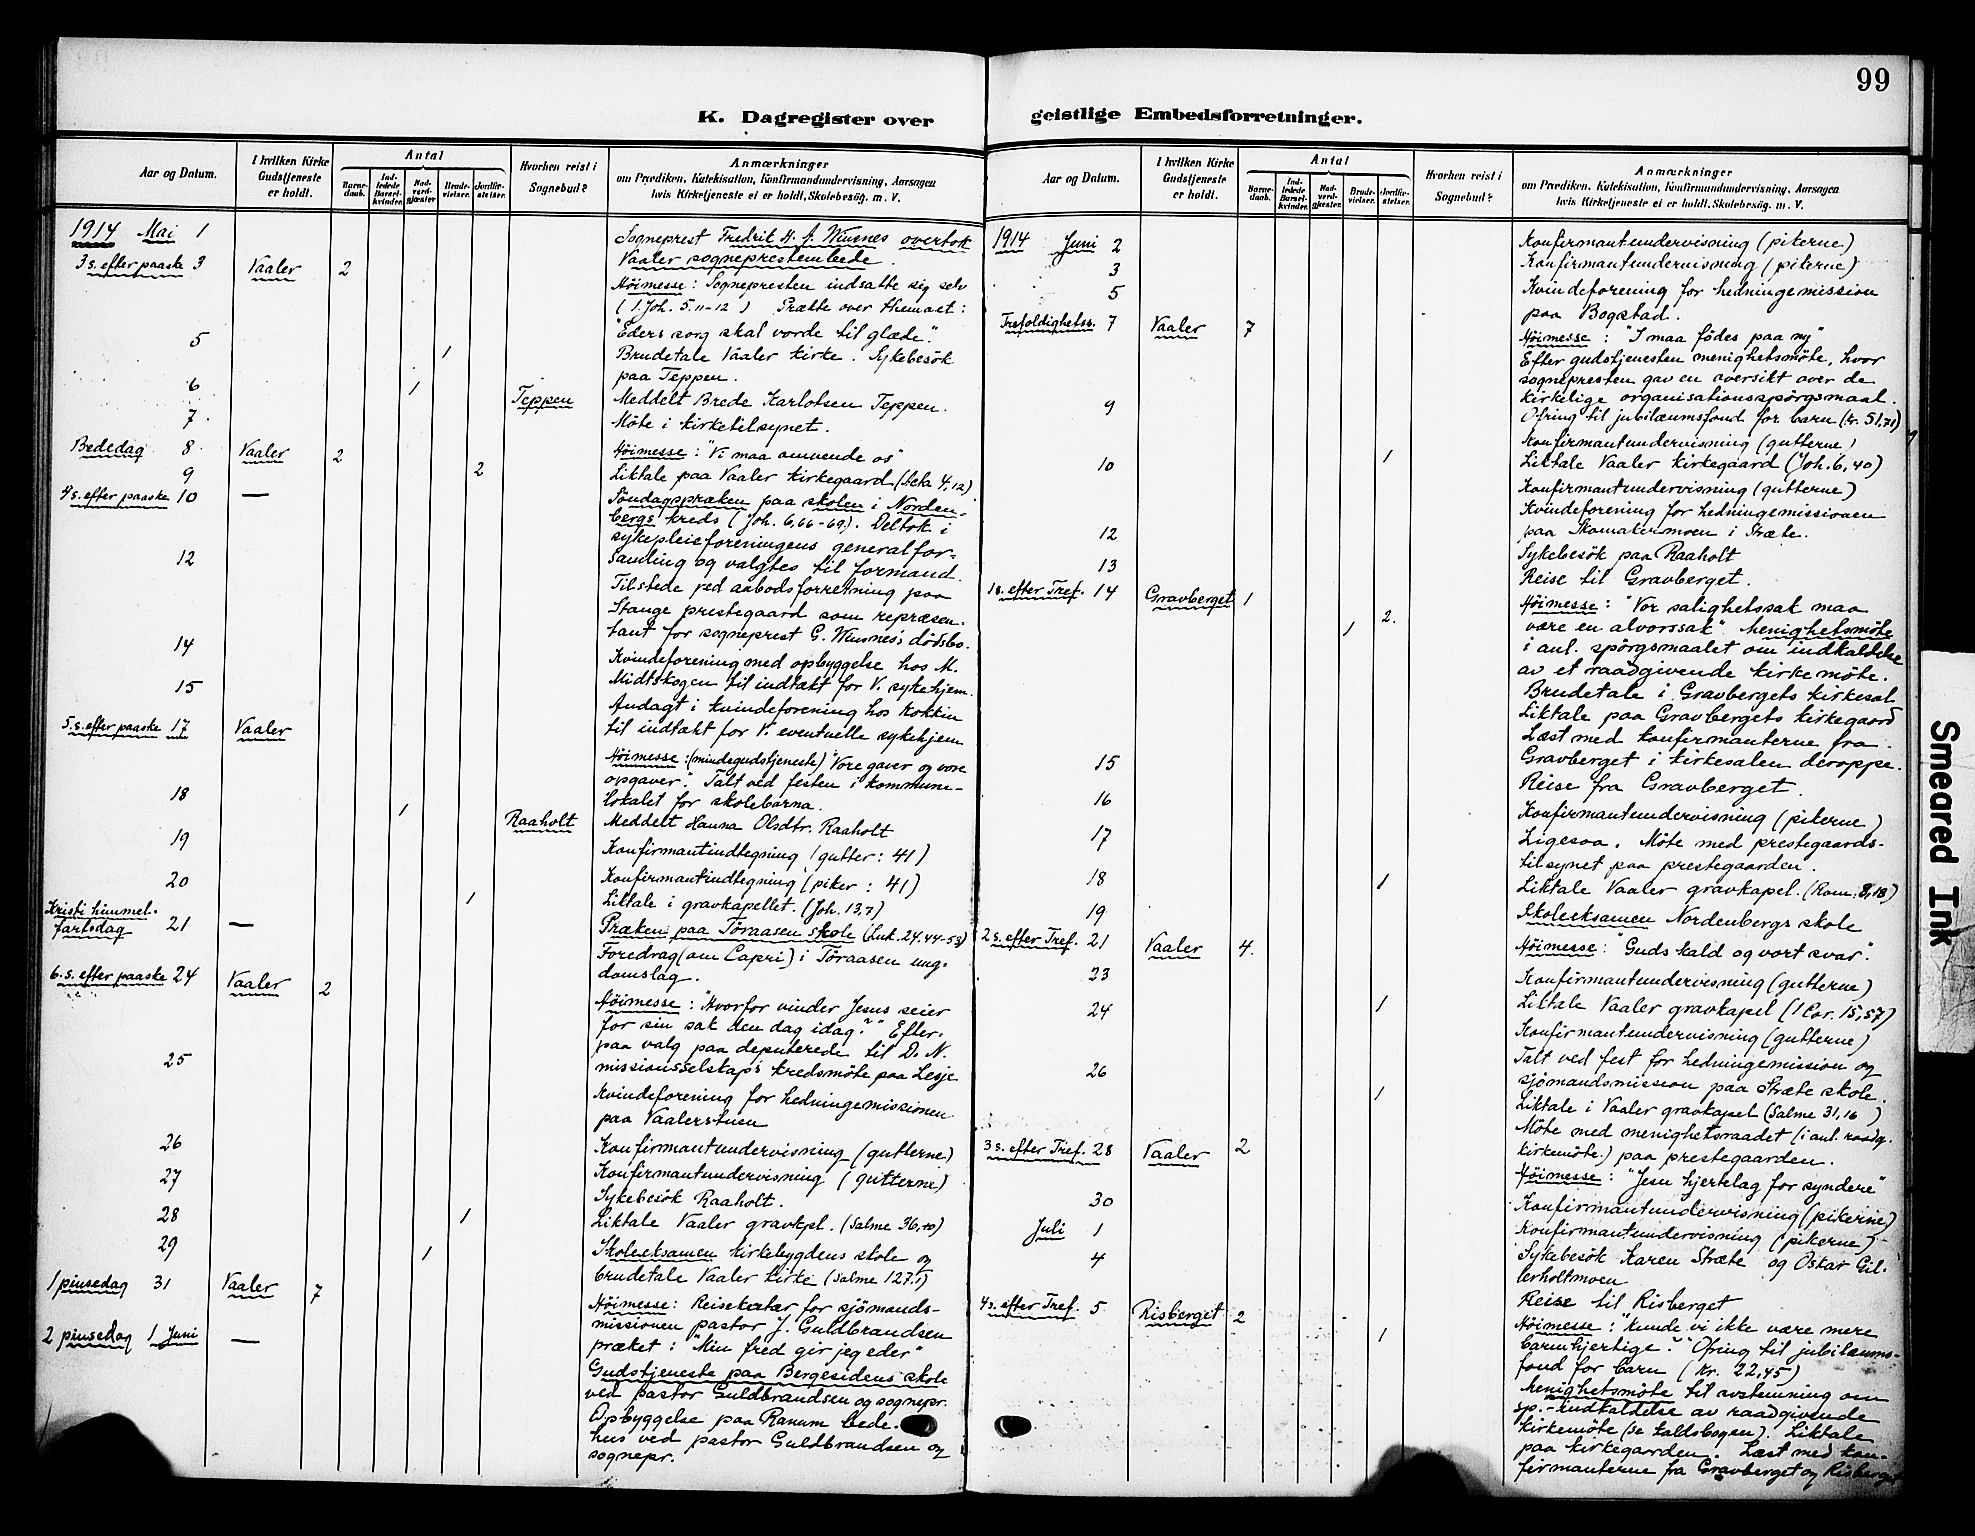 99
K. Dagregister over geistlige Embedsforretninger.
Aar og Datum.
I hvilken Kirke Gudstjeneste er holdt.
Antal
Barnedaab.
Indledede Barselkvinder.
Nadverdgjæster.
Brudevielser.
Jordfæstelser.
Hvorhen reist i Sognebud?
Anmærkninger
om Prædiken, Katekisation, Konfirmandundervisning, Aarsagen
hvis Kirketjeneste ei er holdt, Skolebesög. m. V.
1914 Mai 1
Sogneprest Fredrik H. A. Wiusnes overtok
Vaaler sogneprestembede.
3 s. efter paaske 3 Vaaler 2
Höimesse: Sognepresten indsatte sig selv
(1. Joh. 5. 11-12) Prækte over themaet:
"Eders sorg skal vorde til glæde".
5 1
Brudetale Vaaler kirke. Sykebesök
paa Teppen.
6 1 Teppen
Meddelt Brede Karlotsen Teppen.
7.
Möte i kirketilsynet.
Bededag 8 Vaaler 2
Höimesse: "Vi maa omvende os"
9 2
Liktale paa Vaaler kirkegaard (Acta 4,12).
4 s. efter paaske 10 —
Söndagspræken paa skolen i Norden-
bergs kreds (Joh. 6,66-69). Deltok i
sykepleieforeningens generalfor-
samling og valgtes til formand.
12
Tilstede ved aabodsforretning paa
Stange prestegaard som repræsen-
tant for sogneprest G. Wiusnes's dödsbo.
14
Kvindeforening med opbyggelse hos M.
Midtskogen til indtækt for V. sykehjem.
15
Andagt i kvindeforening hos Kokkin
til indtækt for V. eventuelle sykehjem
5. s. efter paaske 17 Vaaler
Höimesse: (mindegudstjeneste) "Vore gaver og vore
opgaver". Talt ved festen i kommune-
lokalet for skolebarna.
18 1 Raaholt
Meddelt Hanna Olsdtr. Raaholt
19
Konfirmantindtegning (gutter: 41)
20
Konfirmantindtegning (piker: 41)
1
Liktale i gravkapellet. (Joh. 13,7)
Kristi himmel-
fartsdag 21 —
Præken paa Töraasen skole (Luk. 24.44-53)
Foredrag (om Capri) i Töraasen ung-
domslag.
6. s. efter paaske 24 Vaaler 2
Höimesse: "Hvorfor vinder Jesus seier
for sin sak den dag idag?" Efter-
paa valg paa deputerede til D. N.
missionsselskap's kredsmöte paa Lesje
25
Kvindeforening for hedningemissionen
paa Vaalerstuen
26
Konfirmantundervisning (gutterne)
27
Konfirmantundervisning (gutterne)
Sykebesök Raaholt.
28 1
Liktale Vaaler gravkpl. (Salme 36,10)
29 1
Skoleeksamen kirkebygdens skole og
brudetale Vaaler kirke (Salme 127.1)
1 pinsedag 31 Vaaler 7
Höimesse: Reisekretær for sjömands-
missionen pastor J. Guldbrandsen
præket: "Min fred gir jeg eder"
2 pinsedag 1 Juni —
Gudstjeneste paa Bergesidens skole
ved pastor Guldbrandsen og sognepr.
Opbyggelse paa Ranum bede-
hus ved pastor Guldbrandsen og
sognepr.
Aar og Datum.
I hvilken Kirke Gudstjeneste er holdt.
Antal
Barnedaab.
Indledede Barselkvinder.
Nadverdgjæster.
Brudevielser.
Jordfæstelser.
Hvorhen reist i Sognebud?
Anmærkninger
om Prædiken, Katekisation, Konfirmandundervisning, Aarsagen
hvis Kirketjeneste ei er holdt, Skolebesög. m. V.
1914 Juni 2
Konfirmantundervisning (pikerne)
3
Konfirmantundervisning (pikerne)
5
Kvindeforening for hedningemission
paa Bogstad.
Trefoldighetss. 7 Vaaler 7
Höimesse: "I maa födes paa ny"
Efter gudstjenesten menighetsmöte, hvor
sognepresten gav en oversikt over de
kirkelige organisationsspörgsmaal.
Ofring til jubilæumsfond for barn (kr. 51,71)
9
Konfirmantundervisning (gutterne)
1
Liktale Vaaler kirkegaard (Joh. 6,40)
10
Konfirmantundervisning (gutterne)
Kvindeforening for hedningemissionen
paa Skomakermoen i Stræte.
12
Sykebesök paa Raaholt
13
Reise til Gravberget.
1 s. efter Tref. 14 Gravberget 1 1 2.
Höimesse: "Vor salighetssak maa
være en alvorssak". Menighetsmöte
i anl. spörgsmaalet om indkaldelse
av et raadgivende kirkemöte.
Brudetale i Gravbergets kirkesal
Liktale paa Gravbergets kirkegaard
Læst med konfirmanterne fra
Gravberget i kirkesalen deroppe.
15
Reise fra Gravberget.
16
Konfirmantundervisning (pikerne)
17
Ligesaa. Möte med prestegaards-
tilsynet paa prestegaarden.
18 1
Liktale Vaaler gravkapel. (Rom. 8,18)
19
Skoleeksamen Nordenbergs skole
2 s. efter Tref. 21 Vaaler 4.
Höimesse: "Guds kald og vort svar".
23
Konfirmantundervisning (gutterne)
1
Liktale Vaaler gravkapel (1 Cor. 15,57)
24
Konfirmantundervisning (gutterne)
Talt ved fest for hedningemission og
sjömandsmission paa Stræte skole.
26 1
Liktale i Vaaler gravkapel (Salme 31,16)
Möte med menighetsraadet (i anl. raadg.
kirkemöte) paa prestegaarden.
3 s. efter Tref. 28 Vaaler 2
Höimesse: "Jesu hjertelag for syndere"
30
Konfirmantundervisning (pikerne)
Juli 1
Konfirmantundervisning (pikerne)
Sykebesök Karen Stræte og Oskar Gil-
lerholtmoen
4
Reise til Risberget
4 s. efter Tref. 5 Risberget 2 1
Höimesse: "Kunde vi ikke være mere
barmhjertige?" Ofring til jubilæums-
fond for barn (kr. 22,45)
Menighetsmöte til avstemning om
sp.- indkaldelse av raadgivende
kirkemöte (se kaldsbogen). Liktale
paa kirkegaarden. Læst med kon-
firmanterne fra Gravberget og Risberget
Smeared Ink